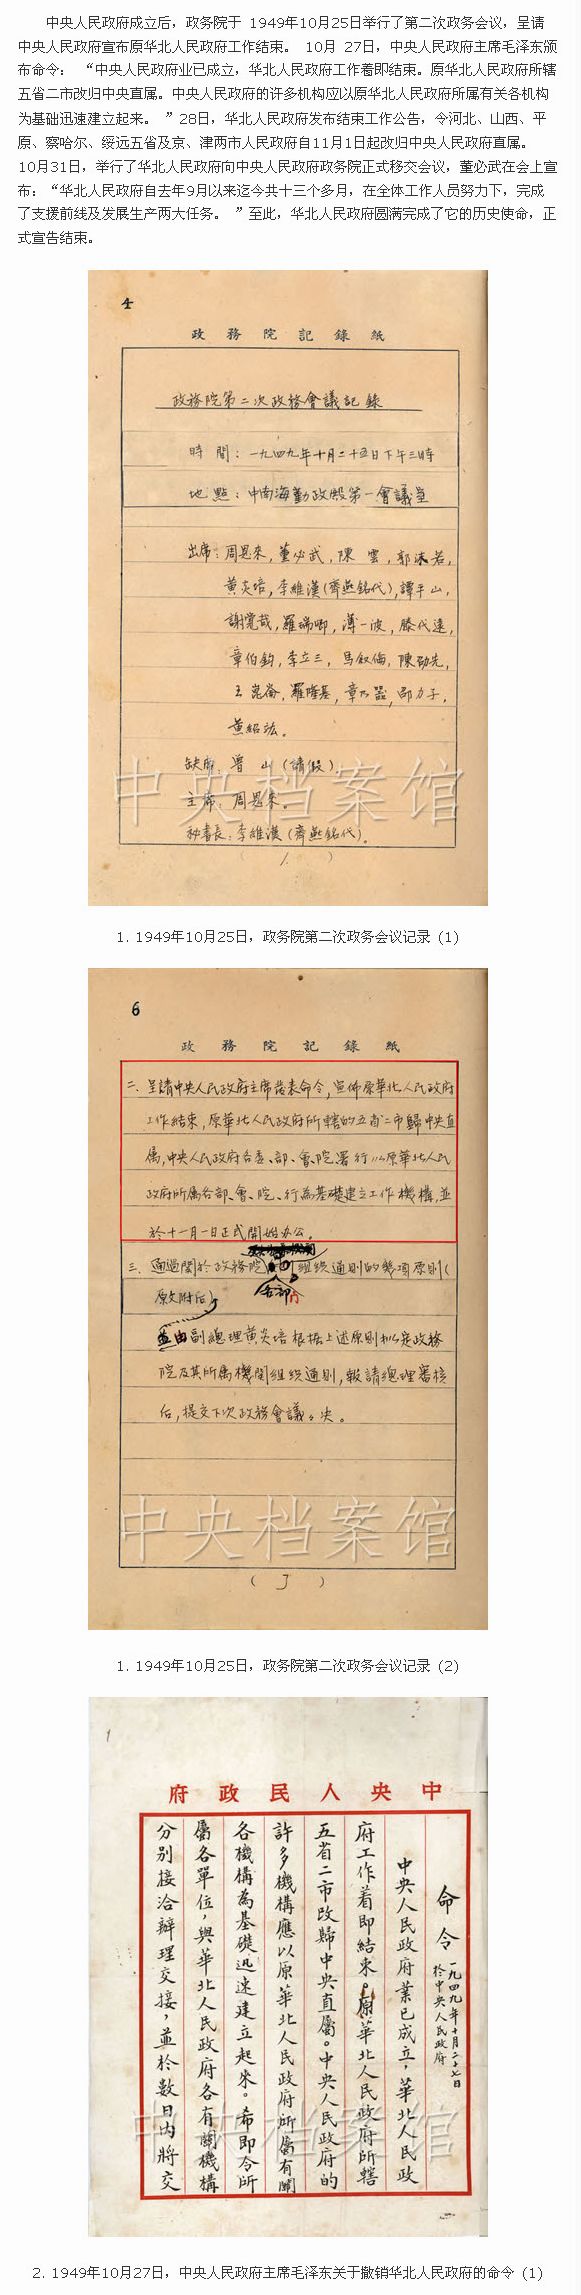 中央人民政府成立后，政务院于 1949年10月25日举行了第二次政务会议，呈请
中央人民政府宣布原华北人民政府工作结束。 10月 27日，中央人民政府主席毛泽东颁
布命令： “中央人民政府业已成立，华北人民政府工作着即结束。原华北人民政府所辖
五省二市改归中央直属。中央人民政府的许多机构应以原华北人民政府所属有关各机构
为基础迅速建立起来。 ”28日，华北人民政府发布结束工作公告，令河北、山西、平
原、察哈尔、绥远五省及京、津两市人民政府自11月1日起改归中央人民政府直属。
10月31日，举行了华北人民政府向中央人民政府政务院正式移交会议，董必武在会上宣
布：“华北人民政府自去年9月以来迄今共十三个多月，在全体工作人员努力下，完成
了支援前线及发展生产两大任务。 ”至此，华北人民政府圆满完成了它的历史使命，正
式宣告结束。
4
政務院記錄紙
政務院第二次政務會議記錄
時間：一九四九年十月二十五日下午三時
地點：中南海勤政殿第一會議室
出席：周恩來，董必武，陳雲，郭沫若，
黄炎培，李維漢（齊燕銘代），譚平山，
謝覺哉，羅瑞卿，薄一波，滕代遠，
章伯鈞，李立三，馬叙倫，陳劭先，
王崑崙，羅隆基，章乃器，邵力子，
黄紹竑。
缺席：曾山（請假）
主席：周恩來。
秘書長：李維漢（齊燕銘代）。
（1）
中央档案馆
1. 1949年10月25日，政务院第二次政务会议记录 (1)
6
政務院記錄紙
二、呈請中央人民政府主席發表命令，宣佈原華北人民政府
工作結束，原華北人民政府所轄的五省二市歸中央直
屬，中央人民政府各委、部、會、院、署、行以原華北人民
政府所屬各部、會、院、行為基礎建立工作機構，並
於十一月一日正式開始办公。
三、通過関於政務院 各部 組織通則的幾項原則（
原文附后）
並由副總理黄炎培根据上述原則擬定政務
院及其所屬機関組織通則，報請總理審核
后，提交下次政務會議々决。
（3）
中央档案馆
1. 1949年10月25日，政务院第二次政务会议记录 (2)
中央人民政府
命令 一九四九年十月二十七日
於中央人民政府
中央人民政府業已成立，華北人民政
府工作着即結束。原華北人民政府所轄
五省二市改歸中央直屬。中央人民政府的
許多機構應以原華北人民政府所屬有關
各機構為基礎迅速建立起來。希即令所
屬各單位，與華北人民政府各有關機構
分别接洽辦理交接，並於數日内將交
中央档案馆
2. 1949年10月27日，中央人民政府主席毛泽东关于撤销华北人民政府的命令 (1)